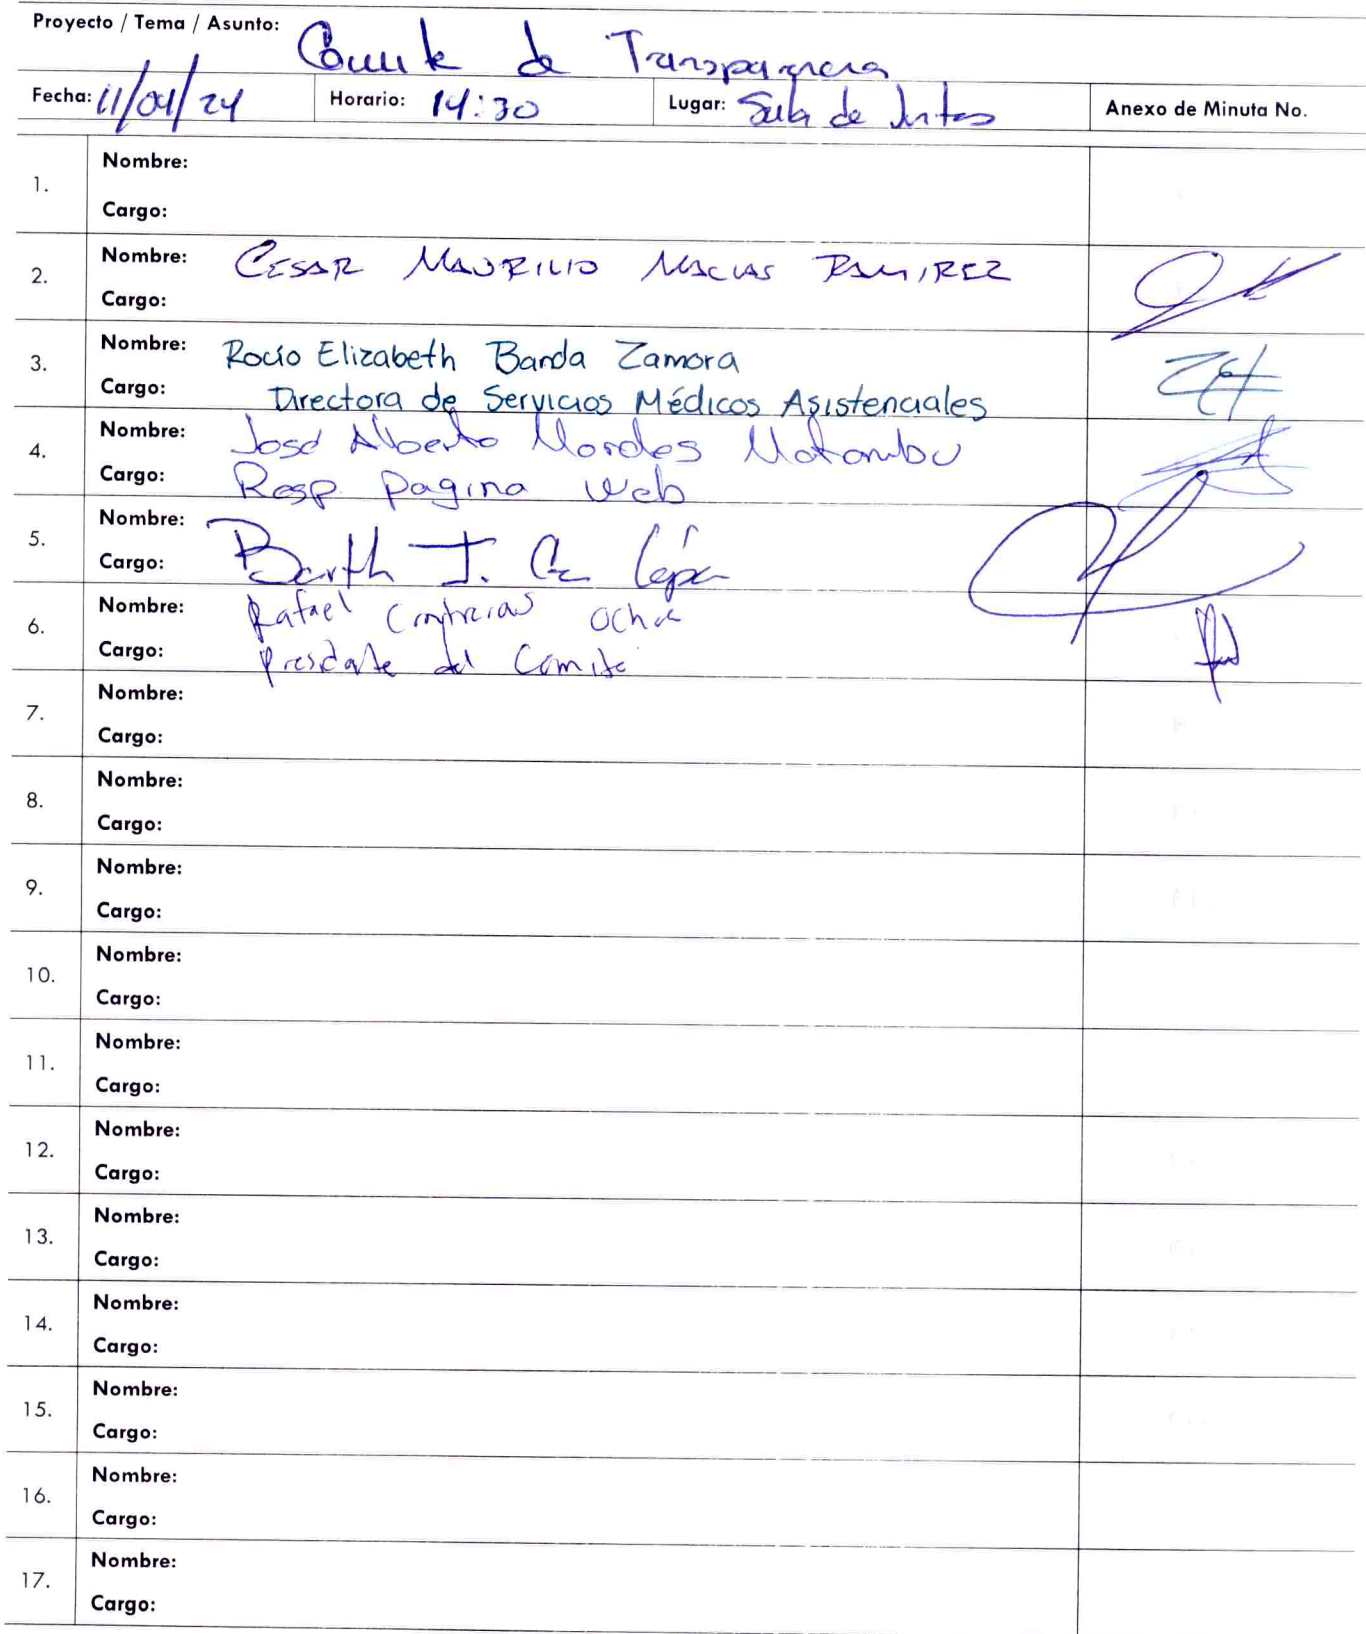 Proyecto / Tema / Asunto: Comite de Transparencia
Fecha: 11/04/24 Horario: 14:30 Lugar: Sala de Juntas Anexo de Minuta No.
1. Nombre:
Cargo:
2. Nombre: CESAR MAURILIO MACIAS RAMIREZ
Cargo:
3. Nombre: Rocío Elizabeth Banda Zamora
Cargo: Directora de Servicios Médicos Asistenciales
4. Nombre: José Alberto Morales
Cargo: Resp. pagina web
5. Nombre:
Cargo: J. López
6. Nombre: Rafael Contreras Ochoa
Cargo: Presidente del Comité
7. Nombre:
Cargo:
8. Nombre:
Cargo:
9. Nombre:
Cargo:
10. Nombre:
Cargo:
11. Nombre:
Cargo:
12. Nombre:
Cargo:
13. Nombre:
Cargo:
14. Nombre:
Cargo:
15. Nombre:
Cargo:
16. Nombre:
Cargo:
17. Nombre:
Cargo: